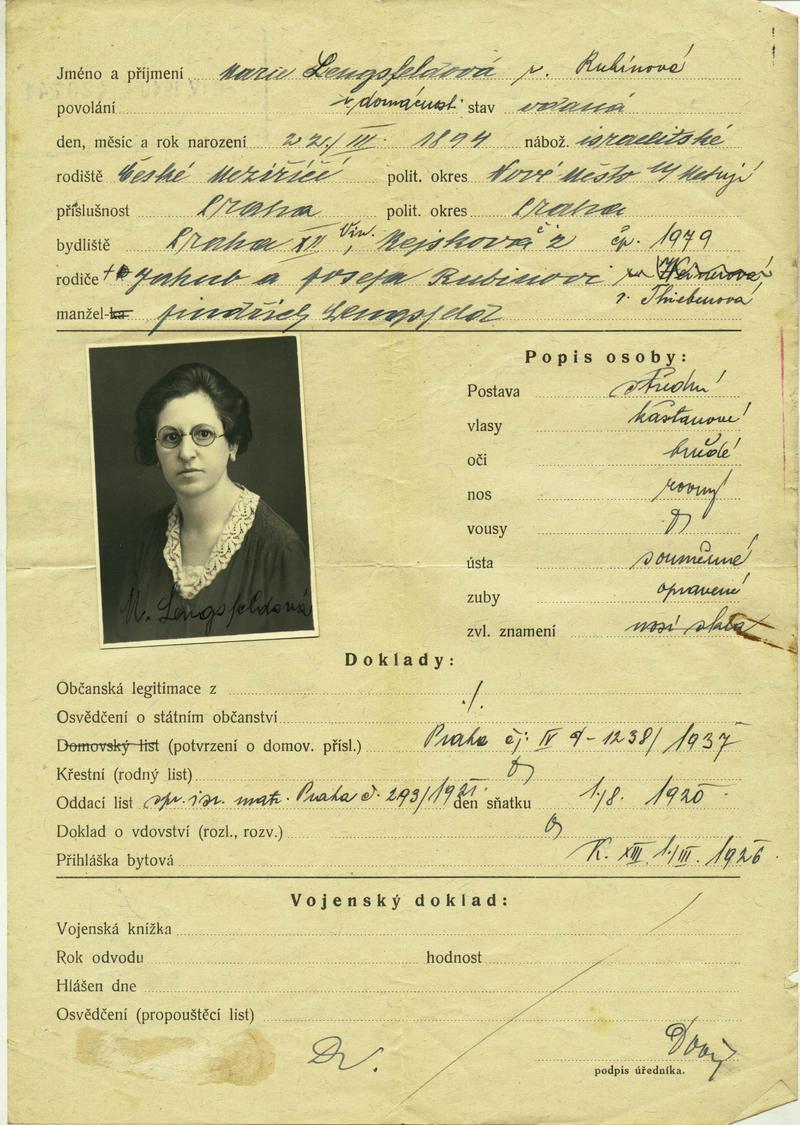 Jméno a příjmení Marie Lengsfeldová r. Rubínová
povolání v domácnost. stav vdaná
den, měsíc a rok narození 22./III. 1894 nábož. israelitské
rodiště České Meziříčí polit. okres Nové Město n/Metují
příslušnost Praha polit. okres Praha
bydliště Praha XII Vin., č 2 čp. 1979
rodiče Jakub a Josefa Rubínovi
r. Thiebenová
manžel-ka Jindřich Lengsfeld
Popis osoby:
Postava střední
vlasy kaštanové
oči hnědé
nos rovný
vousy
ústa souměrné
zuby opravené
zvl. znamení nosí skla
M. Lengsfeldová
Doklady:
Občanská legitimace z
Osvědčení o státním občanství ./.
Domovský list (potvrzení o domov. přísl.) Praha čj: IV d-1238/1937
Křestní (rodný list)
Oddací list isr. matr. Praha č. 293/1921. den sňatku 1./8. 1920
Doklad o vdovství (rozl., rozv.)
Přihláška bytová K. XIII. 1./III. 1926.
Vojenský doklad:
Vojenská knížka
Rok odvodu hodnost
Hlášen dne
Osvědčení (propouštěcí list)
podpis úředníka.